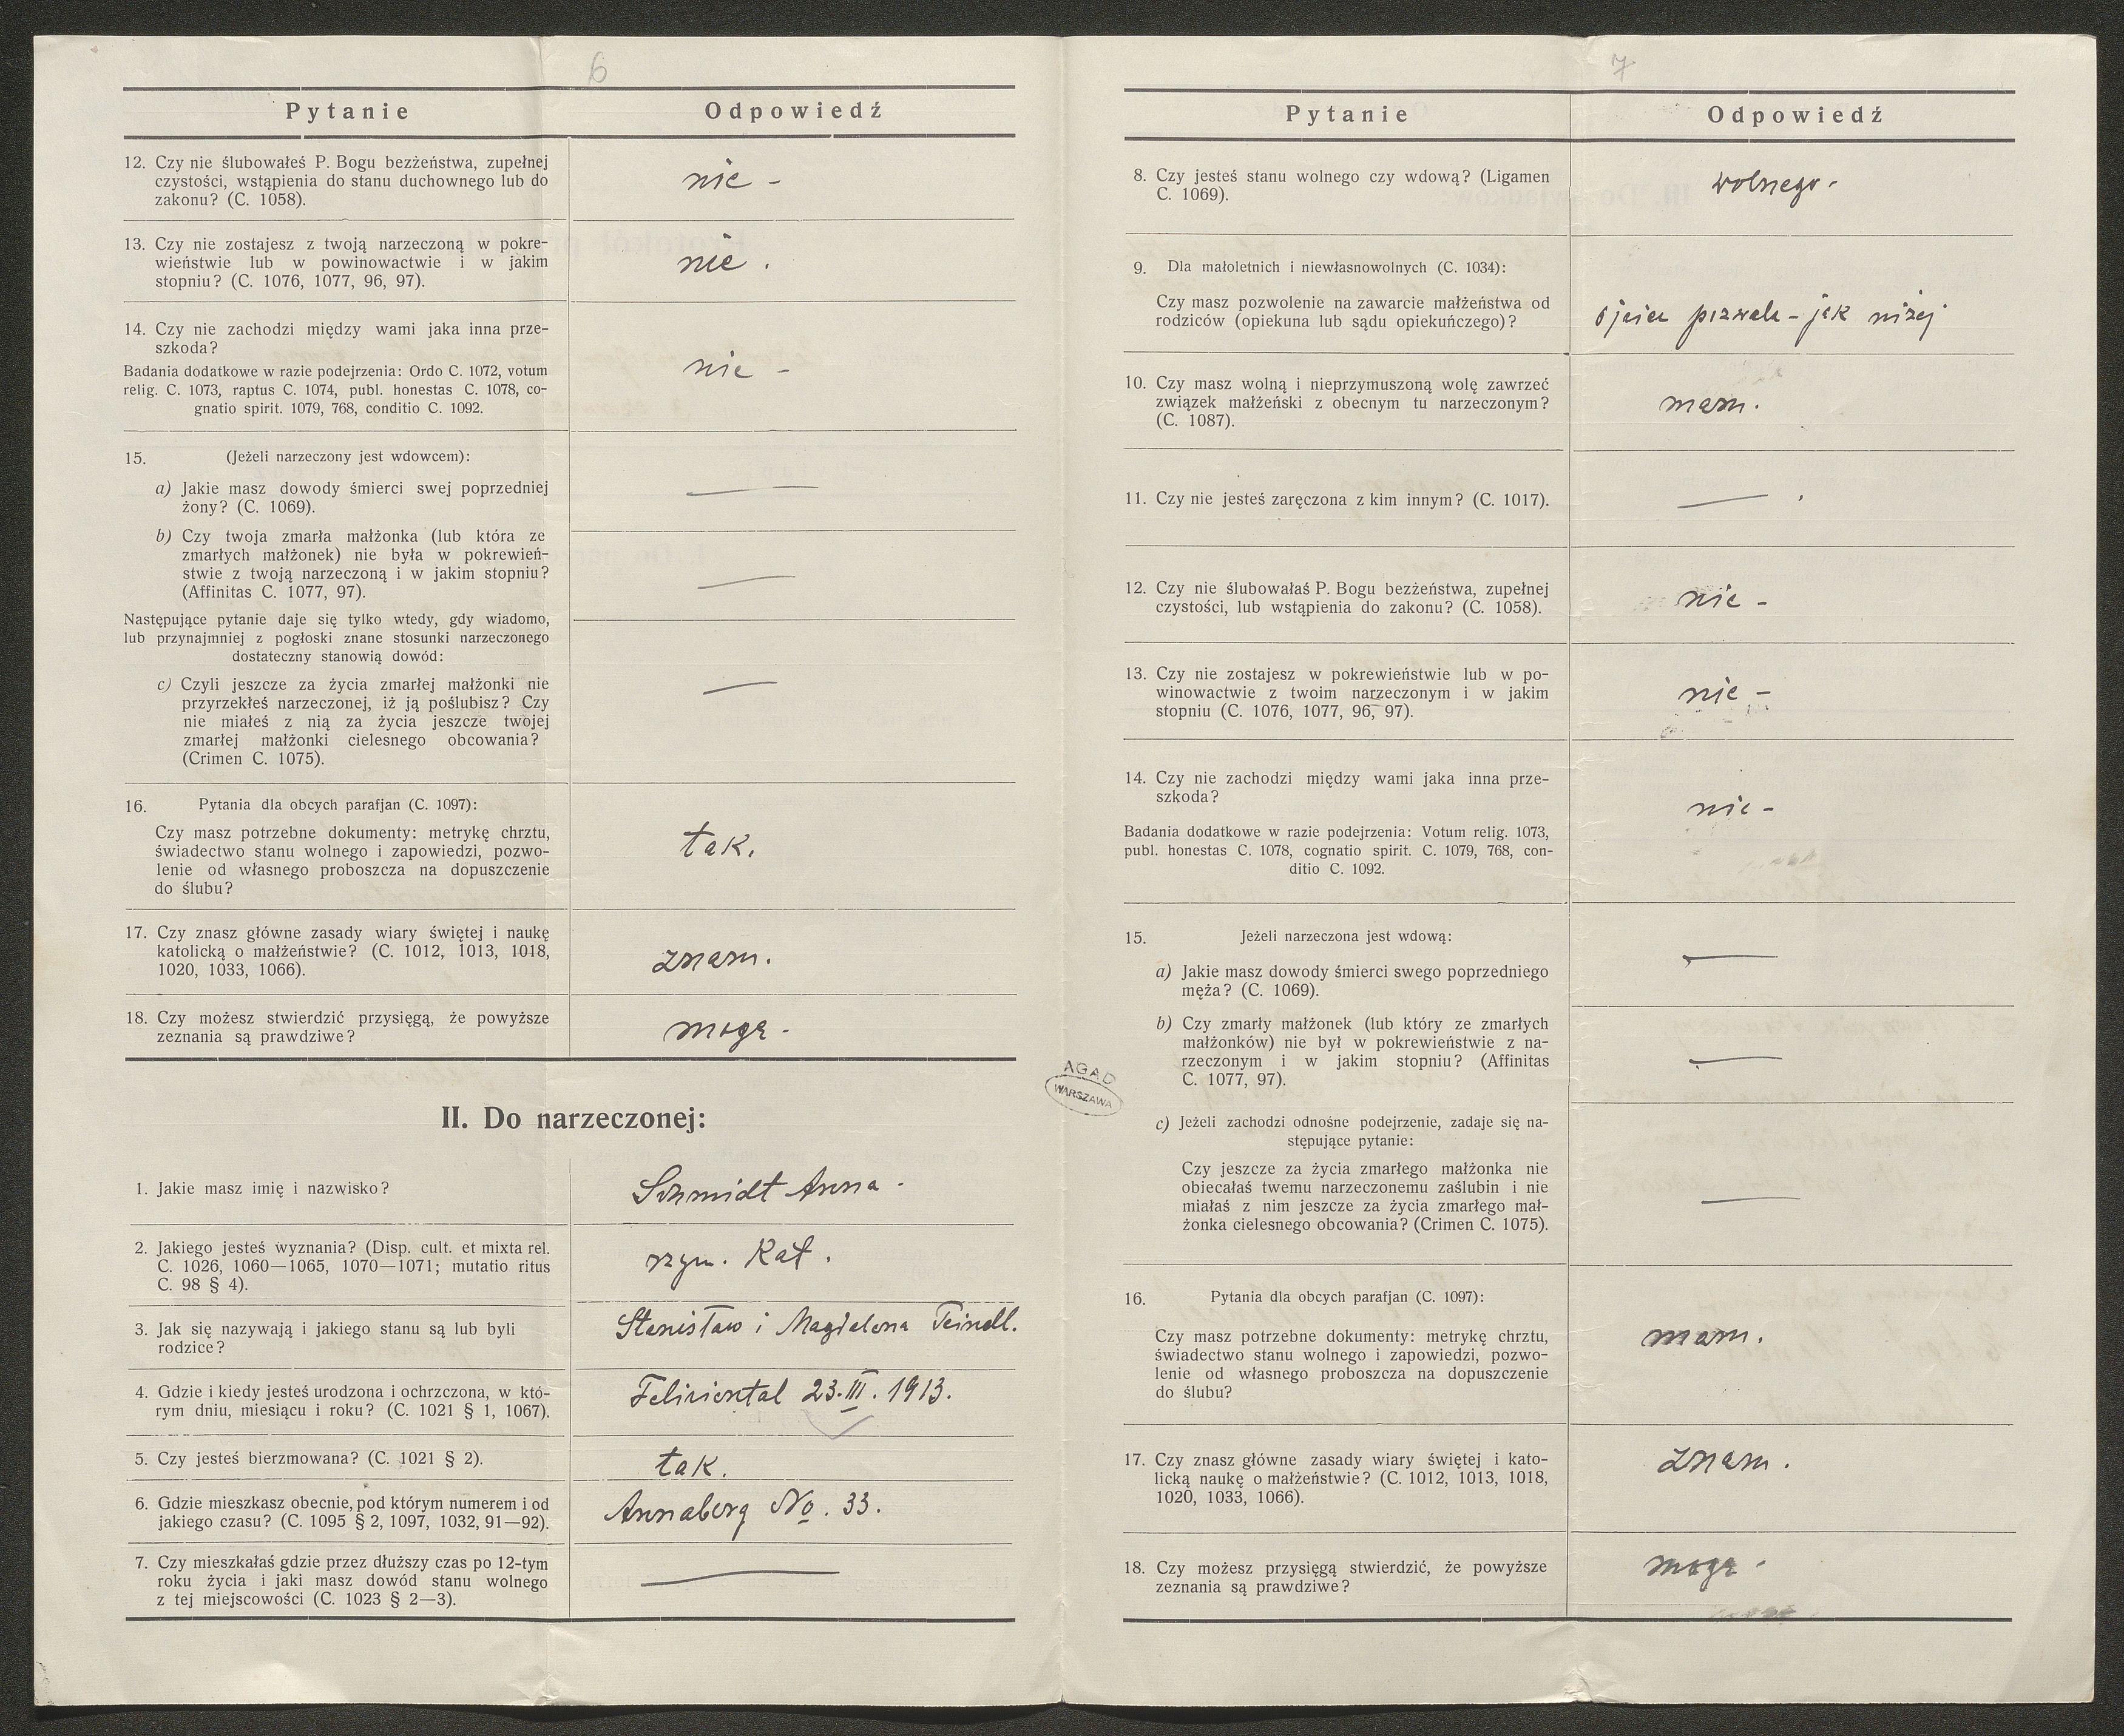 6
Pytanie Odpowiedź
12. Czy nie ślubowałeś P. Bogu bezżeństwa, zupełnej
czystości, wstąpienia do stanu duchownego lub do
zakonu? (C. 1058).
nie -
13. Czy nie zostajesz z twoją narzeczoną w pokre-
wieństwie lub w powinowactwie i w jakim
stopniu? (C. 1076, 1077, 96, 97).
nie.
14. Czy nie zachodzi między wami jaka inna prze-
szkoda?
Badania dodatkowe w razie podejrzenia: Ordo C. 1072, votum
relig. C. 1073, raptus C. 1074, publ. honestas C. 1078, co-
gnatio spirit. 1079, 768, conditio C. 1092.
nie -
15. (Jeżeli narzeczony jest wdowcem):
a) Jakie masz dowody śmierci swej poprzedniej
żony? (C. 1069).
—
b) Czy twoja zmarła małżonka (lub która ze
zmarłych małżonek) nie była w pokrewień-
stwie z twoją narzeczoną i w jakim stopniu?
(Affinitas C. 1077, 97).
—
Następujące pytanie daje się tylko wtedy, gdy wiadomo,
lub przynajmniej z pogłoski znane stosunki narzeczonego
dostateczny stanowią dowód:
c) Czyli jeszcze za życia zmarłej małżonki nie
przyrzekłeś narzeczonej, iż ją poślubisz? Czy
nie miałeś z nią za życia jeszcze twojej
zmarłej małżonki cielesnego obcowania?
(Crimen C. 1075).
—
16. Pytania dla obcych parafjan (C. 1097):
Czy masz potrzebne dokumenty: metrykę chrztu,
świadectwo stanu wolnego i zapowiedzi, pozwo-
lenie od własnego proboszcza na dopuszczenie
do ślubu?
tak.
17. Czy znasz główne zasady wiary świętej i naukę
katolicką o małżeństwie? (C. 1012, 1013, 1018,
1020, 1033, 1066).
znam.
18. Czy możesz stwierdzić przysięgą, że powyższe
zeznania są prawdziwe?
mogę -
II. Do narzeczonej:
1. Jakie masz imię i nazwisko?
Schmidt Anna -
2. Jakiego jesteś wyznania? (Disp. cult. et mixta rel.
C. 1026, 1060—1065, 1070—1071; mutatio ritus
C. 98 § 4).
rzym. Kat.
3. Jak się nazywają i jakiego stanu są lub byli
rodzice?
Stanisław i Magdalena
4. Gdzie i kiedy jesteś urodzona i ochrzczona, w któ-
rym dniu, miesiącu i roku? (C. 1021 § 1, 1067).
Feliziental 23.III.1913.
5. Czy jesteś bierzmowana? (C. 1021 § 2).
tak.
6. Gdzie mieszkasz obecnie, pod którym numerem i od
jakiego czasu? (C. 1095 § 2, 1097, 1032, 91—92).
Annaberg No. 33.
7. Czy mieszkałaś gdzie przez dłuższy czas po 12-tym
roku życia i jaki masz dowód stanu wolnego
z tej miejscowości (C. 1023 § 2—3).
—
AGAD
WARSZAWA
7
Pytanie Odpowiedź
8. Czy jesteś stanu wolnego czy wdową? (Ligamen
C. 1069).
wolnego -
9. Dla małoletnich i niewłasnowolnych (C. 1034):
Czy masz pozwolenie na zawarcie małżeństwa od
rodziców (opiekuna lub sądu opiekuńczego)?
ojciec pozwala - jak niżej
10. Czy masz wolną i nieprzymuszoną wolę zawrzeć
związek małżeński z obecnym tu narzeczonym?
(C. 1087).
mam.
11. Czy nie jesteś zaręczona z kim innym? (C. 1017).
—
12. Czy nie ślubowałaś P. Bogu bezżeństwa, zupełnej
czystości, lub wstąpienia do zakonu? (C. 1058).
nie -
13. Czy nie zostajesz w pokrewieństwie lub w po-
winowactwie z twoim narzeczonym i w jakim
stopniu (C. 1076, 1077, 96, 97).
nie -
14. Czy nie zachodzi między wami jaka inna prze-
szkoda?
Badania dodatkowe w razie podejrzenia: Votum relig. 1073,
publ. honestas C. 1078, cognatio spirit. C. 1079, 768, con-
ditio C. 1092.
nie -
15. Jeżeli narzeczona jest wdową:
a) Jakie masz dowody śmierci swego poprzedniego
męża? (C. 1069).
—
b) Czy zmarły małżonek (lub który ze zmarłych
małżonków) nie był w pokrewieństwie z na-
rzeczonym i w jakim stopniu? (Affinitas
C. 1077, 97).
—
c) Jeżeli zachodzi odnośne podejrzenie, zadaje się na-
stępujące pytanie:
Czy jeszcze za życia zmarłego małżonka nie
obiecałaś twemu narzeczonemu zaślubin i nie
miałaś z nim jeszcze za życia zmarłego mał-
żonka cielesnego obcowania? (Crimen C. 1075).
—
16. Pytania dla obcych parafjan (C. 1097):
Czy masz potrzebne dokumenty: metrykę chrztu,
świadectwo stanu wolnego i zapowiedzi, pozwo-
lenie od własnego proboszcza na dopuszczenie
do ślubu?
mam.
17. Czy znasz główne zasady wiary świętej i kato-
licką naukę o małżeństwie? (C. 1012, 1013, 1018,
1020, 1033, 1066).
znam.
18. Czy możesz przysięgą stwierdzić, że powyższe
zeznania są prawdziwe?
mogę -